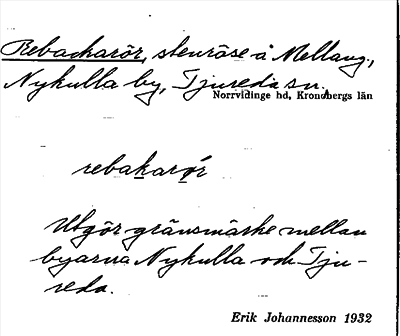 Rebackarör, stenröse å Mellang.,
Nykulla by, Tjureda sn.
Norrvidinge hd, Kronobergs län
rebakarör
Utgör gränsmärke mellan
byarna Nykulla och Tju-
reda.
Erik Johannesson 1932